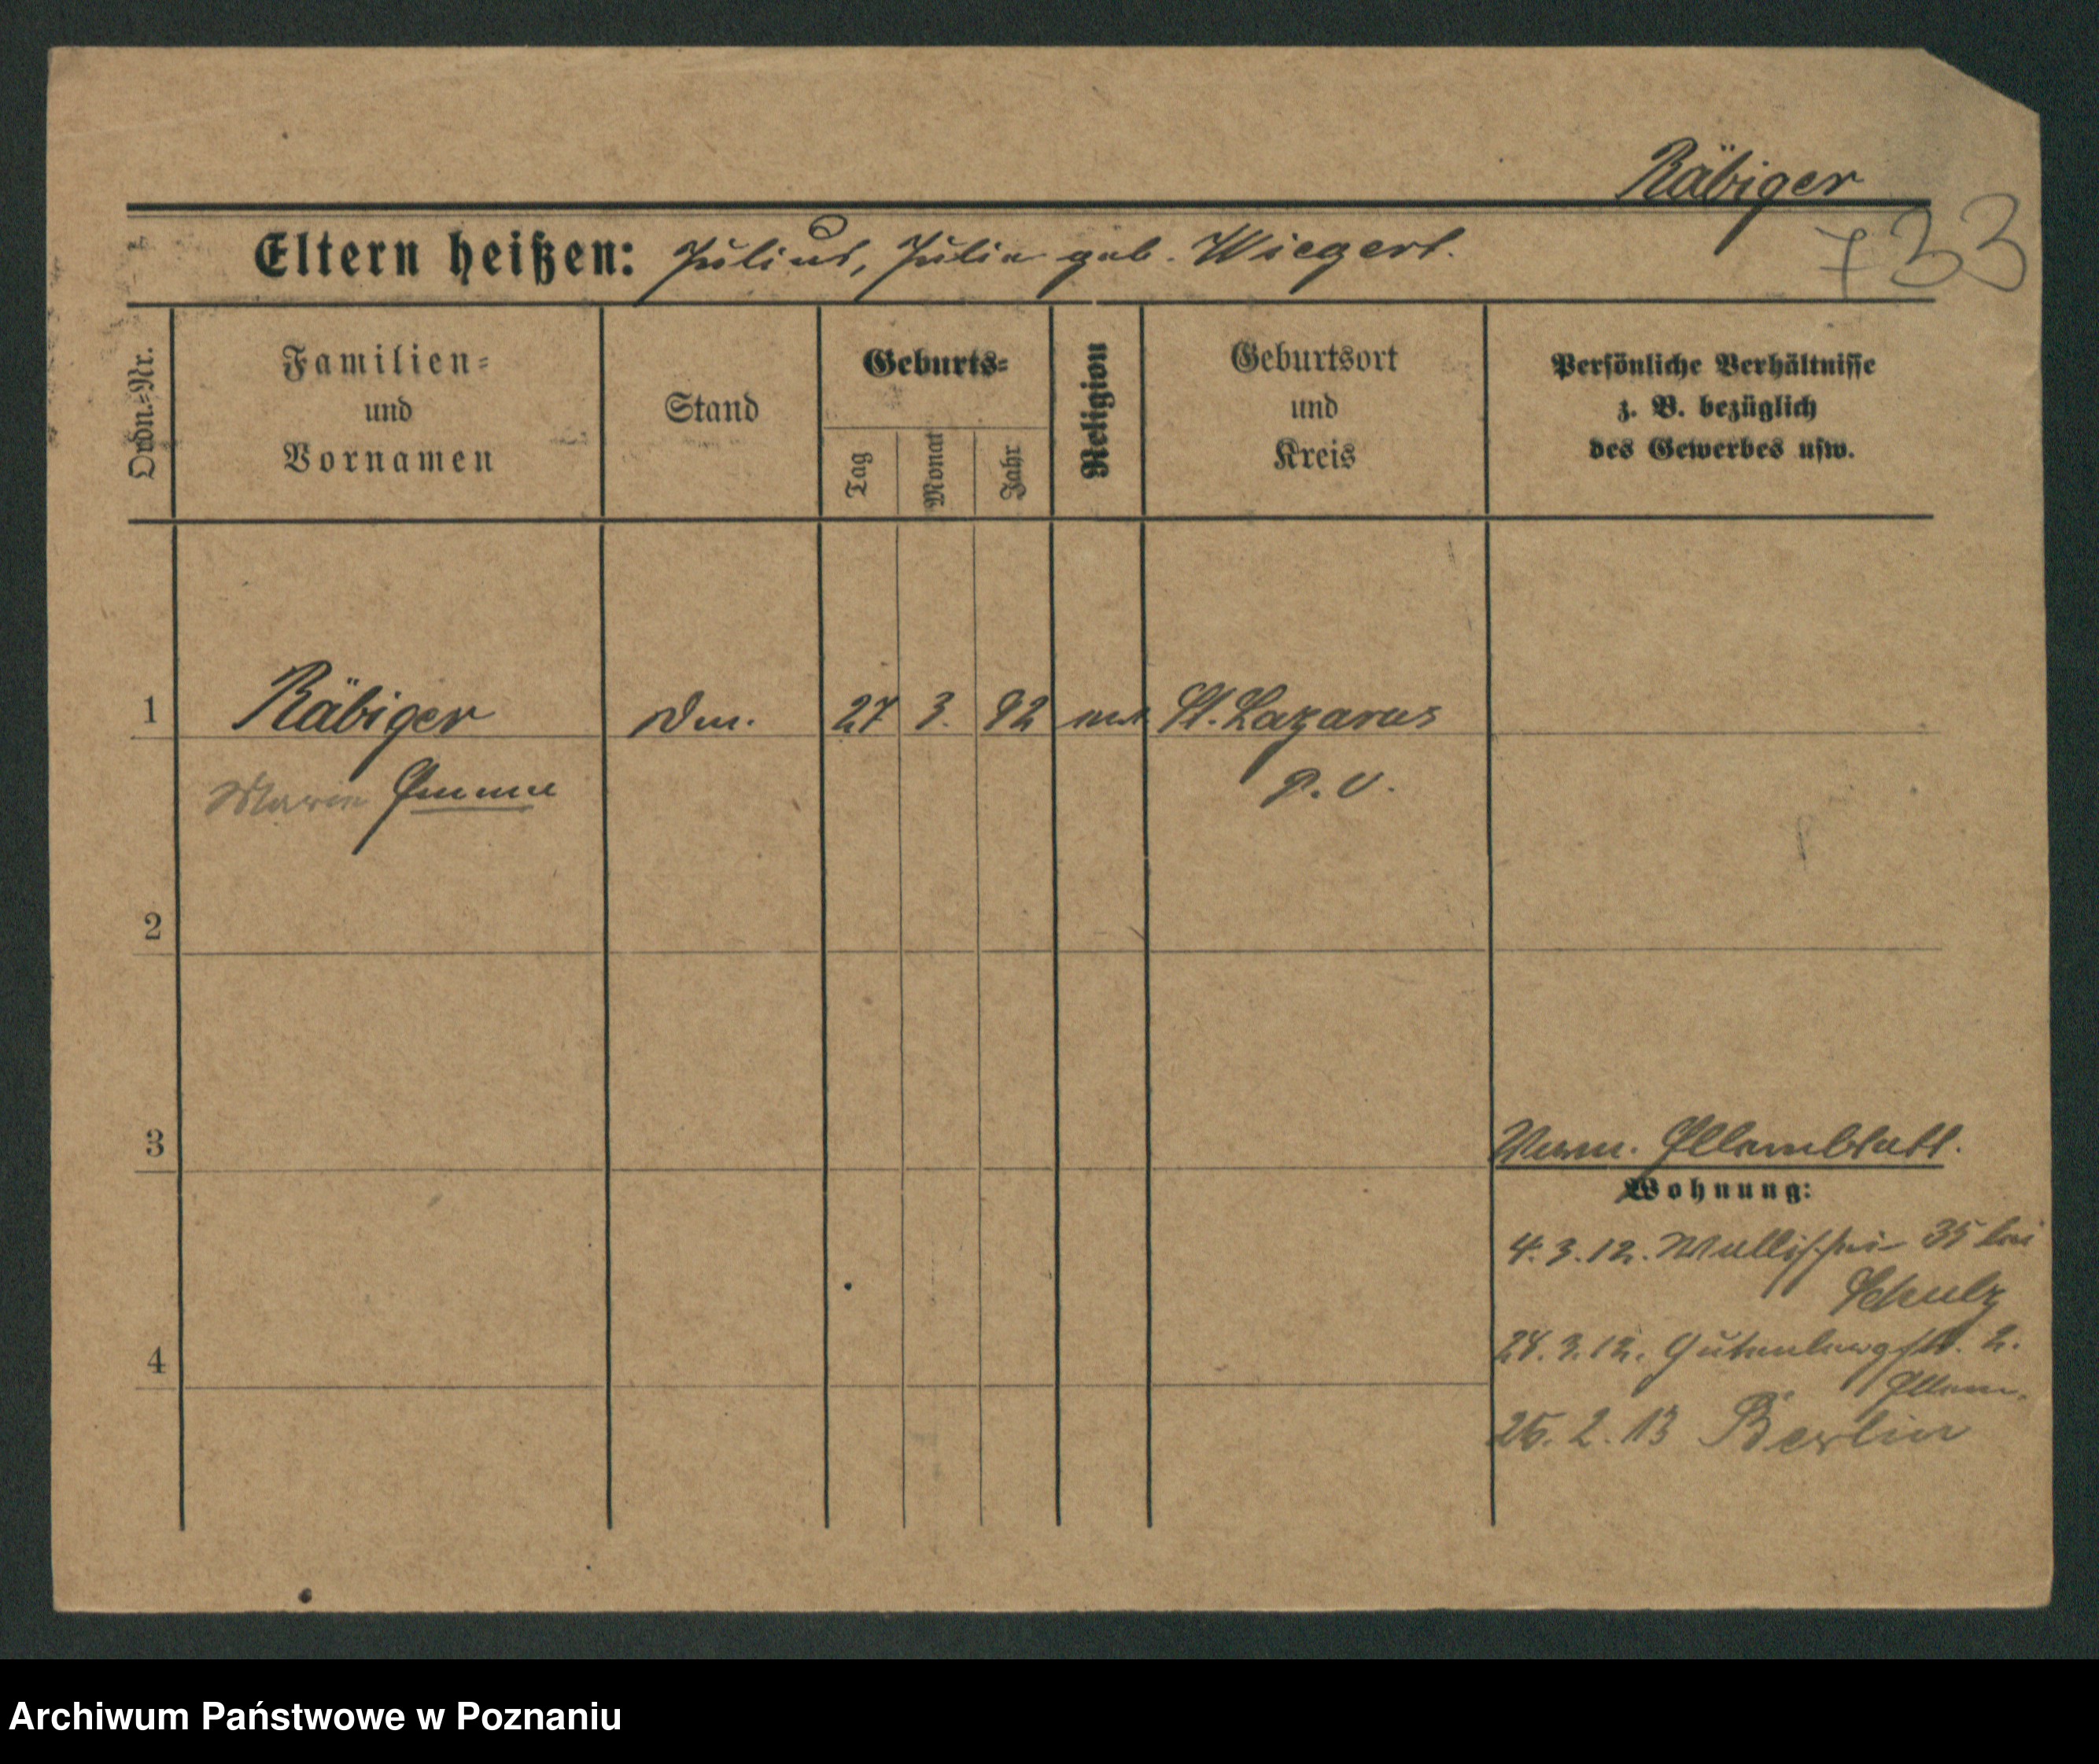 Räbiger
733
Eltern heißen: Julius, Julia geb. Wiegert.
Ordn.-Nr.
Familien-
und
Vornamen
Stand
Geburts-
Tag
Monat
Jahr
Religion
Geburtsort
und
Kreis
Persönliche Verhältnisse
z. B. bezüglich
des Gewerbes usw.
1 Räbiger 27 3. 92 St. Lazarus
Marie Emma P. O.
2
3
Elternblatt.
Wohnung:
4.3.12. Wallischei 35 bei
Schulz
28.3.12. Gutenbergstr. 2.
Eltern.
4
25.2.13 Berlin
Archiwum Państwowe w Poznaniu